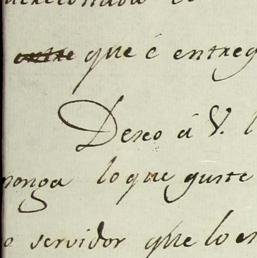 que é entreg
Deseo á V. l
ponga lo que guste
o servidor que lo es